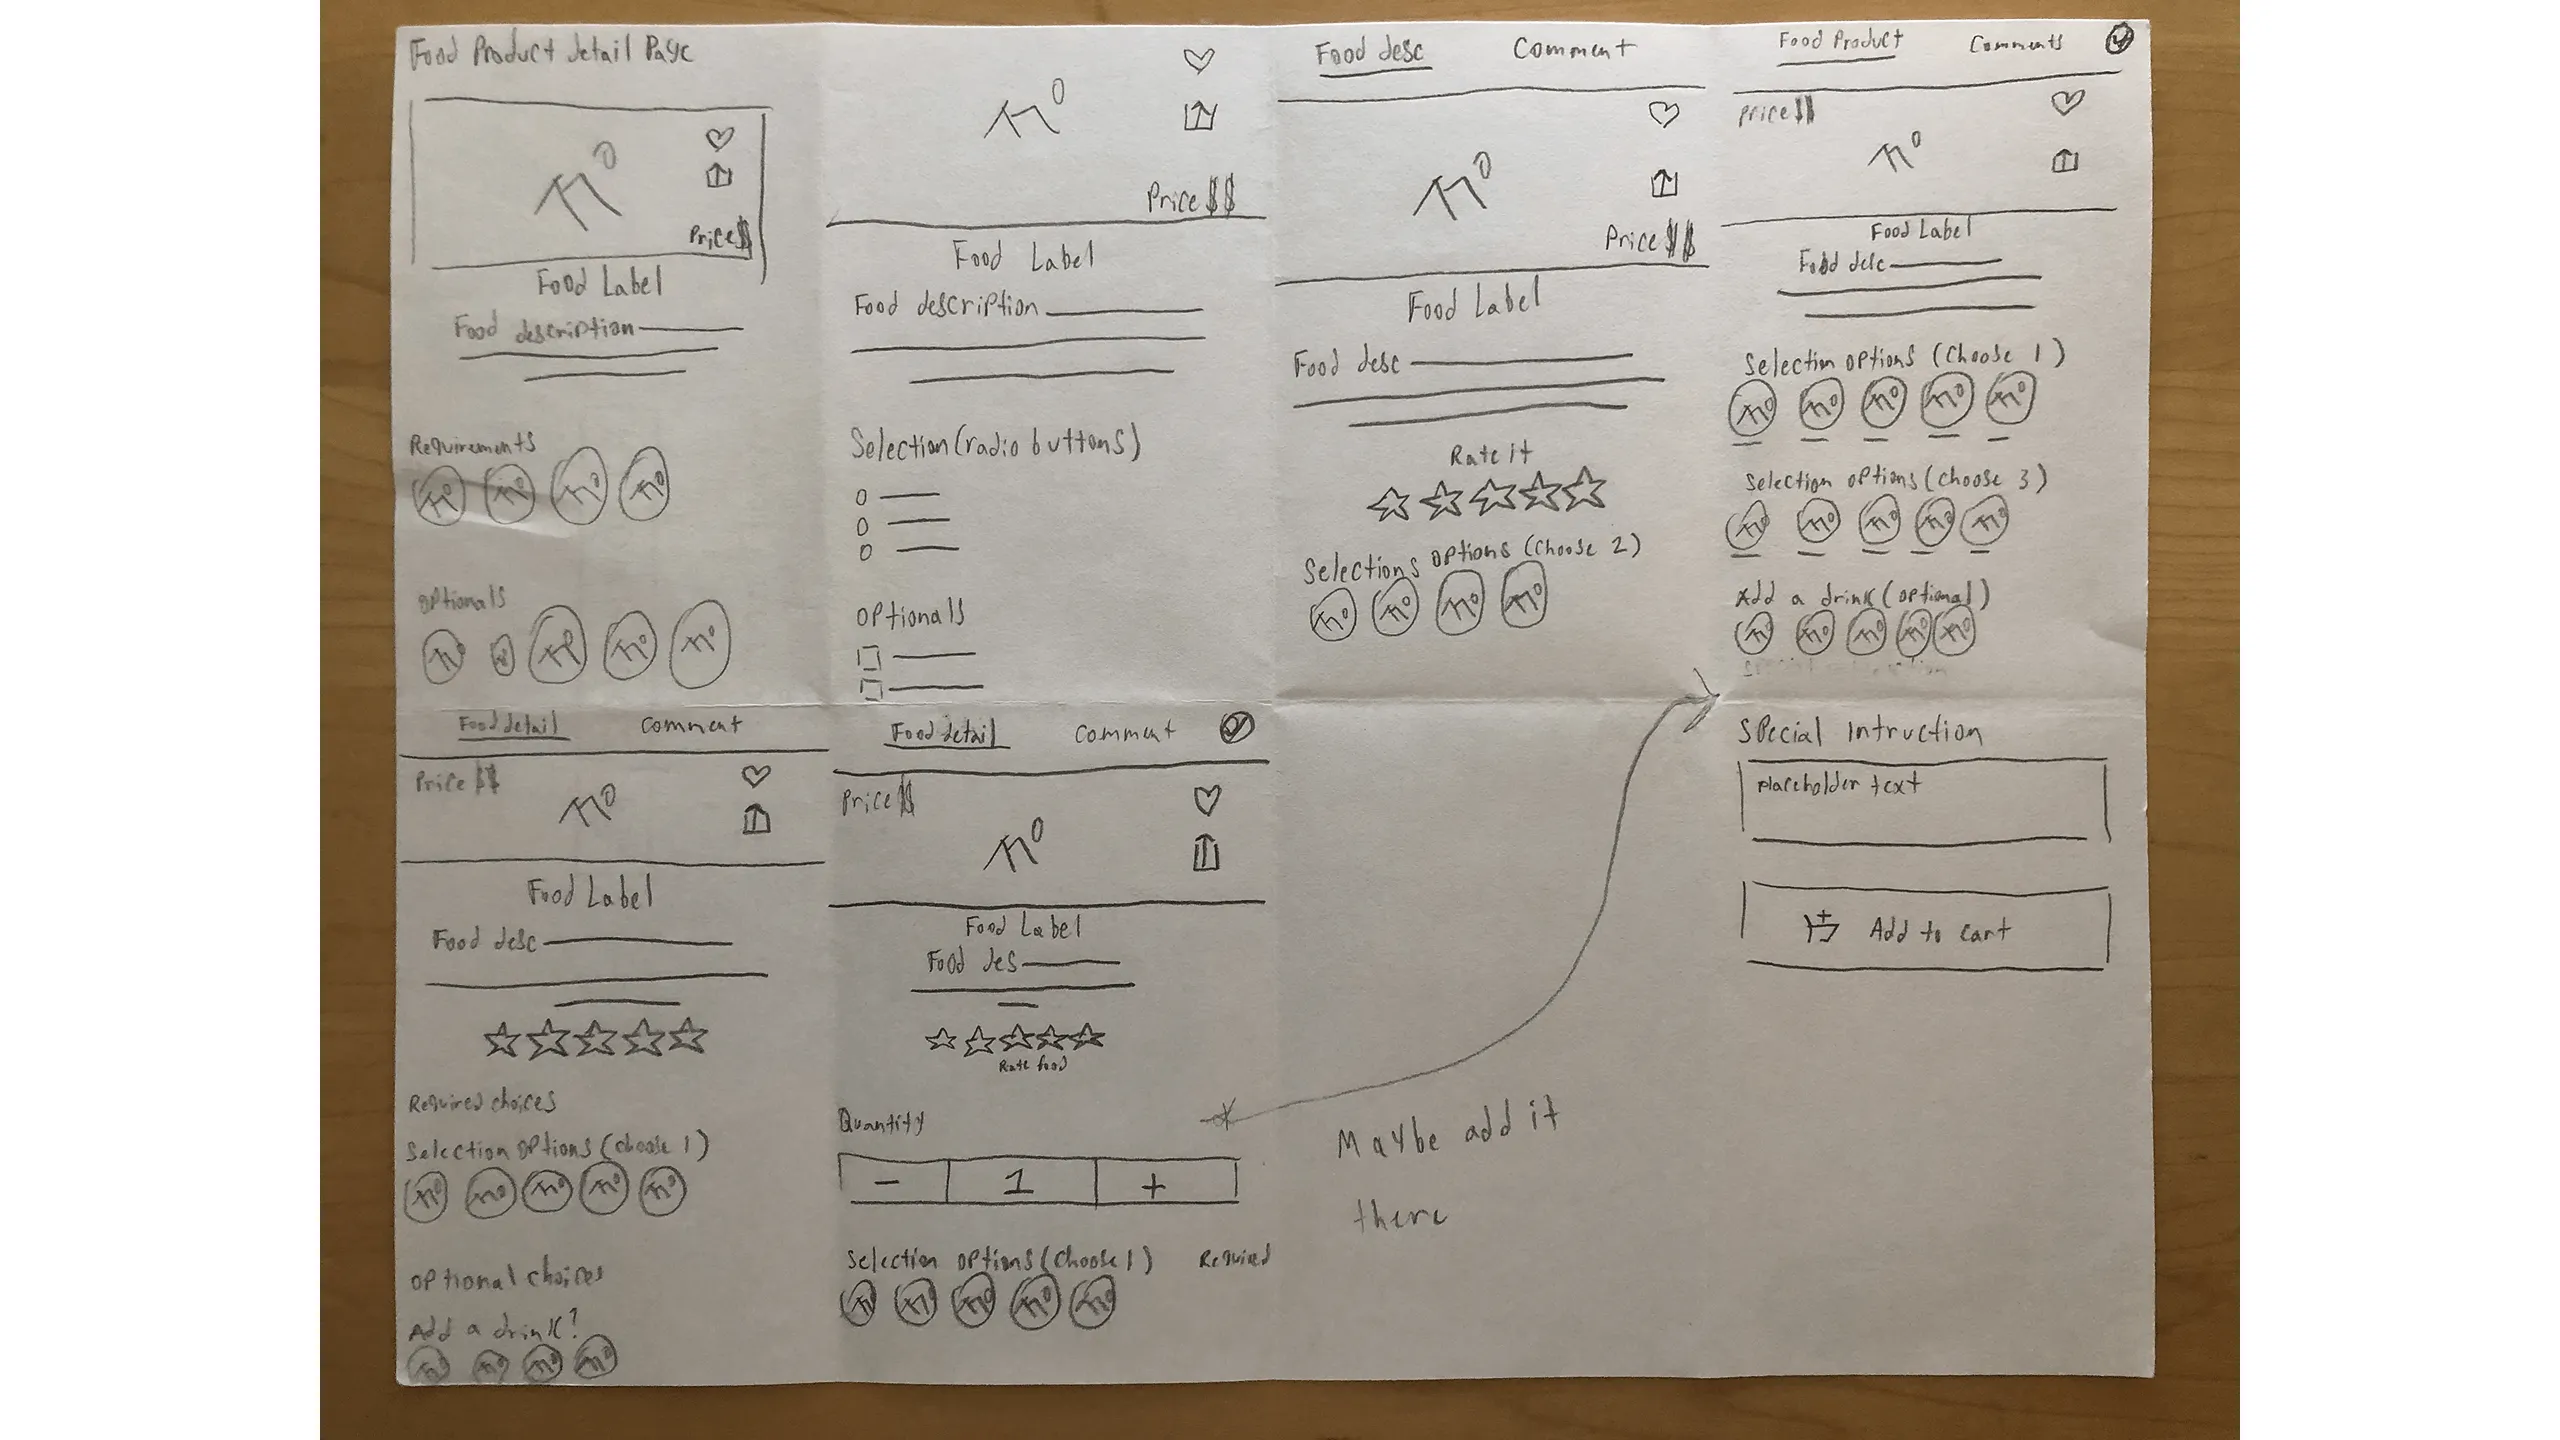 Food Product detail Page
Price $
Food Label
Food description
Requirements
optionals
Price $$
Food Label
Food description
Selection (radio buttons)
optionals
Food desc Comment
Price $$
Food Label
Food desc
Rate it
Selections options (Choose 2)
Food Product Comments
Price $$
Food Label
Food desc
Selection options (Choose 1)
Selection options (Choose 3)
Add a drink (optional)
Food detail Comment
Price $$
Food Label
Food desc
Required choices
Selection options (choose 1)
optional choices
Add a drink?
Food detail Comment
Price $$
Food Label
Food des
Rate food
Quantity
- 1 +
Selection options (Choose 1) Required
Maybe add it
there
Special Intruction
Placeholder text
Add to cart